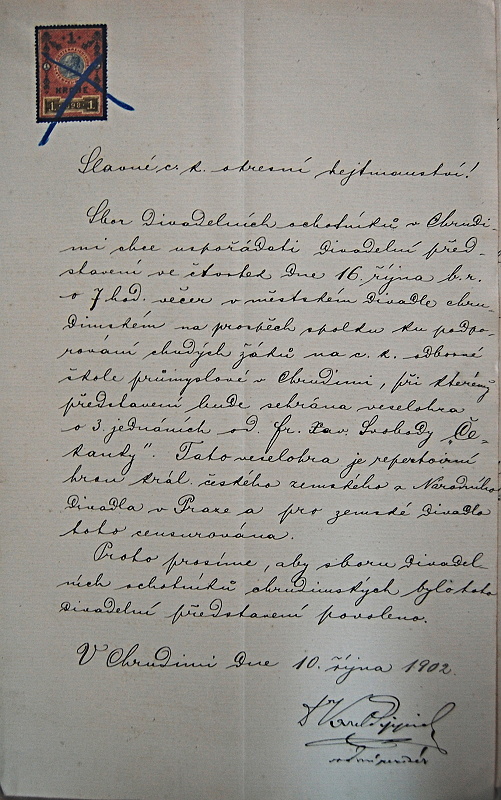 1
KRONE
1 1898 1
Slavné c. k. okresní hejtmanství!
Sbor divadelních ochotníků v Chrudi-
mi chce uspořádati divadelní před-
stavení ve čtvrtek dne 16. října b. r.
o 7 hod. večer v městském divadle chru-
dimském na prospěch spolku ku podpo-
rování chudých žáků na c. k. odborné
škole průmyslové v Chrudimi, při kterémž
představení bude sehrána veselohra
o 3. jednáních od Fr. Xav. Svobody „Če-
kanky". Tato veselohra je repertoirní
hrou král. českého zemského a Národního
divadla v Praze a pro zemské divadlo
toto censurována.
Proto prosíme, aby sboru divadel-
ních ochotníků chrudimských bylo toto
divadelní představení povoleno.
V Chrudimi dne 10. října 1902.
Dr Karel Pippich